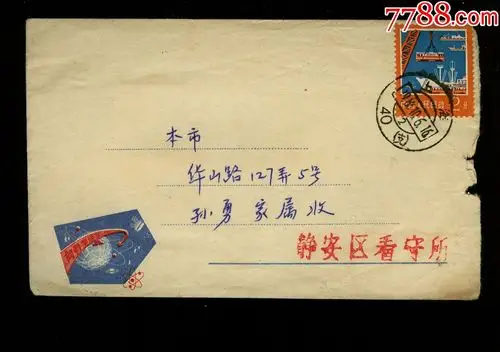 7788.com
本市
华山路127弄5号
孙勇 家属收
静安区看守所